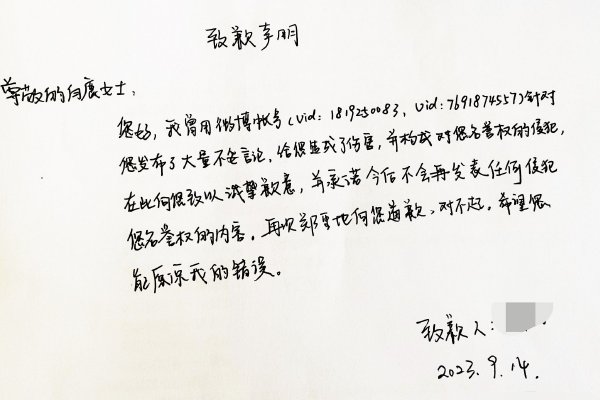 致歉声明
尊敬的白鹿女士：
您好，我曾用微博帐号(uid: 1819250083，uid: 7691874557)针对
您发布了大量不妥言论，给您造成了伤害，并构成对您名誉权的侵犯，
在此向您致以诚挚歉意，并承诺今后不会再发表任何侵犯
您名誉权的内容。再次郑重地向您道歉，对不起。希望您
能原谅我的错误。
致歉人：
2023.9.14.